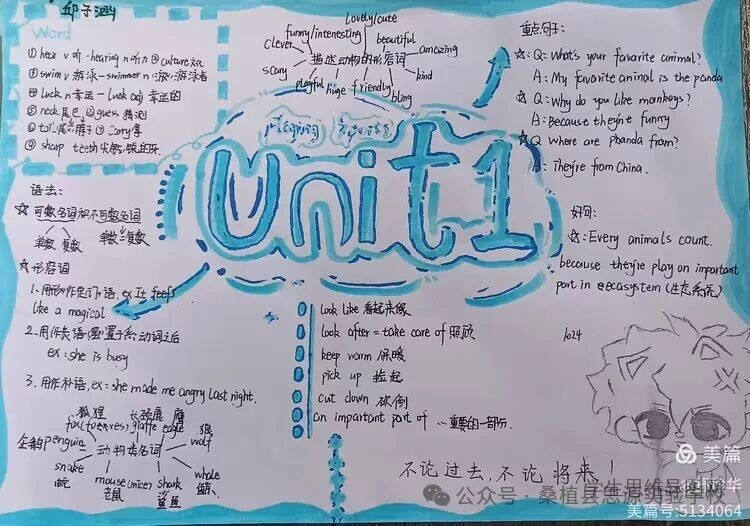 邱子涵
Word
① hear v 听 -hearing n 听力 ⑧ culture 文化
② swim v 游泳 - swimmer n 游泳者
③ luck n 幸运 - luck adj 幸运的
④ neck
⑥ guess 猜测
⑤ tail 尾
⑦ carry 拿
⑨ sharp teeth
lovely/cute
funny/intenesting
beautiful
clever
amazing
描述动物的形容词
scary
kind
playful
huge
friendly
bling
重点句子:
☆: Q: What's your favarite animal?
A: My favorite animal is the panda
☆ Q: Why do you like monkeys?
A: Because they're funny
☆ Q: Where are pbanda from?
B: They're from China.
好句:
☆: Every animals count.
because they're play an important
part in eecasystem (生态系统)
Unit 1
语法:
☆ 可数名词和不可数名词
单数 复数
☆ 形容词
like a magical
ex: she is busy
3. 用作补语, ex: she made me angry last night.
look like 看起来像
look after = take care of 照顾
keep warm 保暖
pick up 捡起
cut down 砍倒
an important part of ...重要的一部分.
狐狸 长颈鹿 鹰
fox giaffe eagle
狼
wolf
企鹅 penguin
动物类名词
snake
蛇
mouse (mice)
老鼠
shark
鲨鱼
whale
鲸
不论过去,不论将来!
美篇
公众号·桑植县思源实验学校
美篇号:5134064